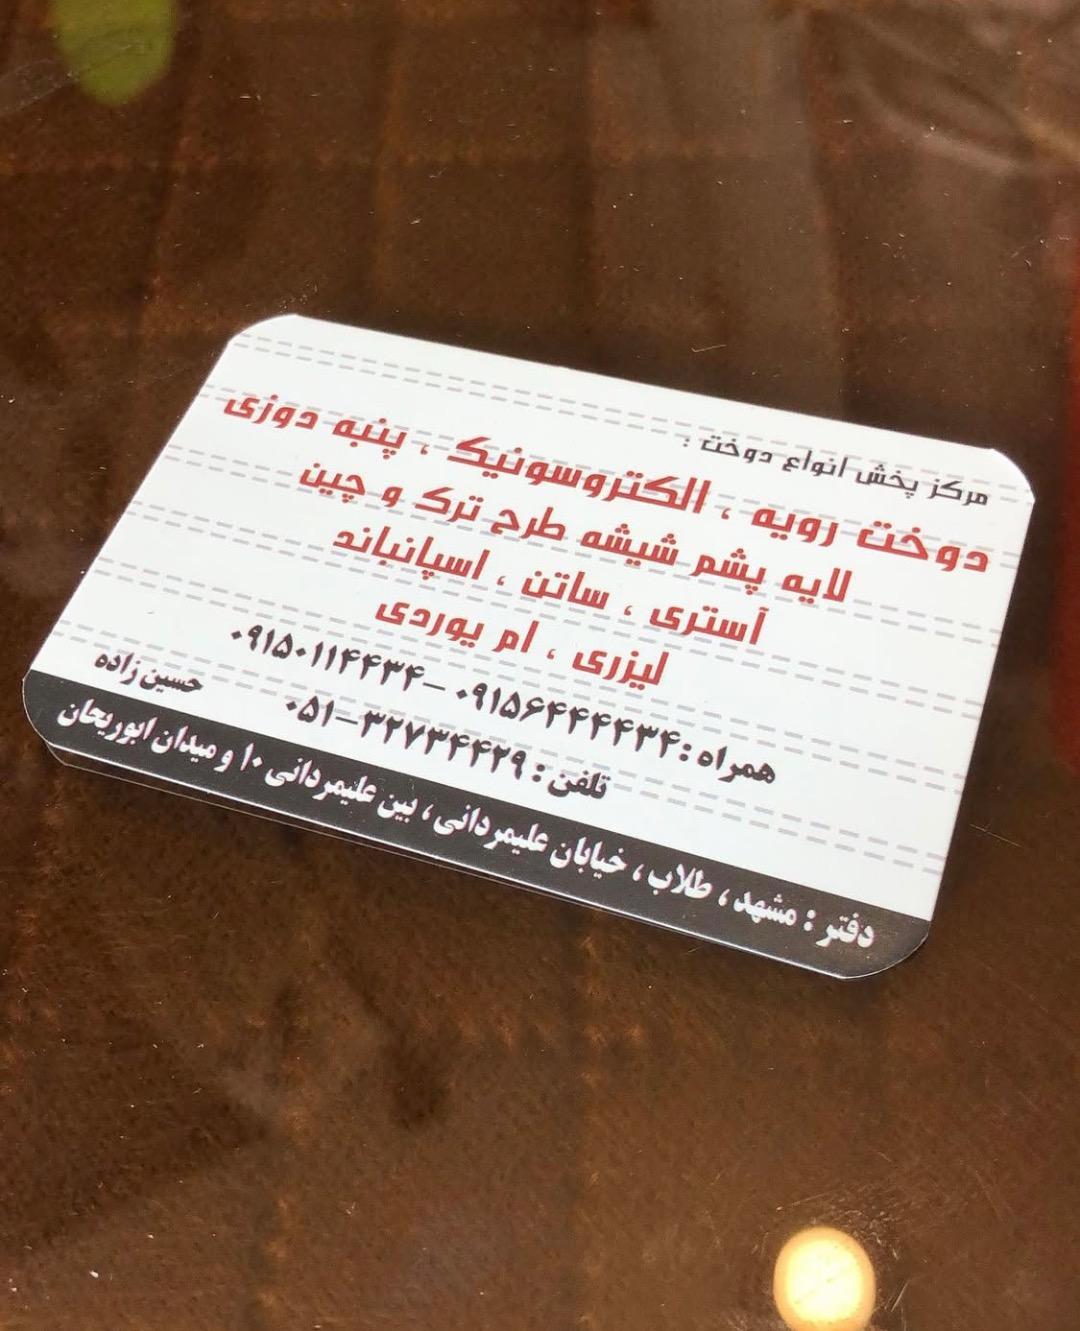 مرکز پخش انواع دوخت :
دوخت رویه ، الکتروسونیک ، پنبه دوزی
لایه پشم شیشه طرح ترک و چین
آستری ، ساتن ، اسپانباند
لیزری ، ام یوردی
همراه : ۰۹۱۵۶۴۴۴۴۳۴ - ۰۹۱۵۰۱۱۴۴۳۴
تلفن : ۰۵۱-۳۲۷۳۴۴۲۹
حسین زاده
دفتر : مشهد ، طلاب ، خیابان علیمردانی ، بین علیمردانی ۱۰ و میدان ابوریحان